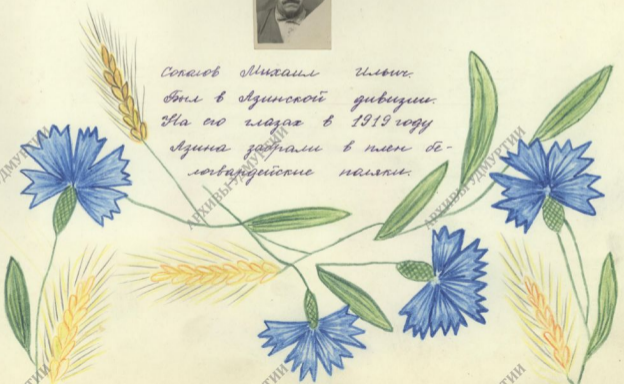 Соколов Михаил Ильич.
Был в Азинской дивизии.
На его глазах в 1919 году
Азина забрали в плен бе-
логвардейские поляки.
АРХИВЫ УДМУРТИИ
АРХИВЫ УДМУРТИИ